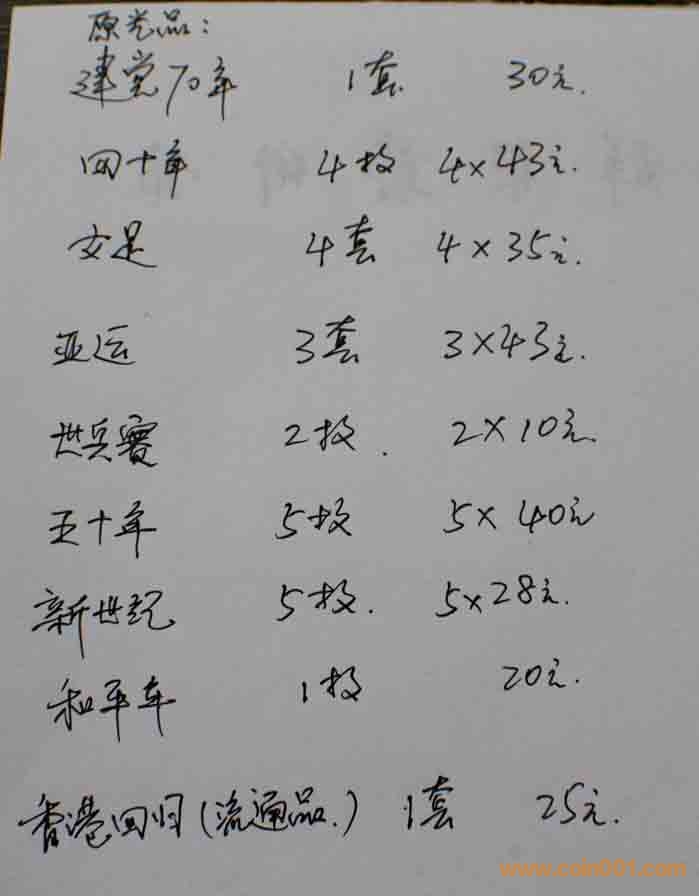 原光品:
建党70年 1套 30元.
四十年 4枚 4×43元.
女足 4套 4×35元.
亚运 3套 3×43元.
世乒赛 2枚. 2×10元.
五十年 5枚 5×40元
新世纪 5枚. 5×28元.
和平年 1枚 20元.
香港回归(流通品.) 1套 25元.
www.coin001.com